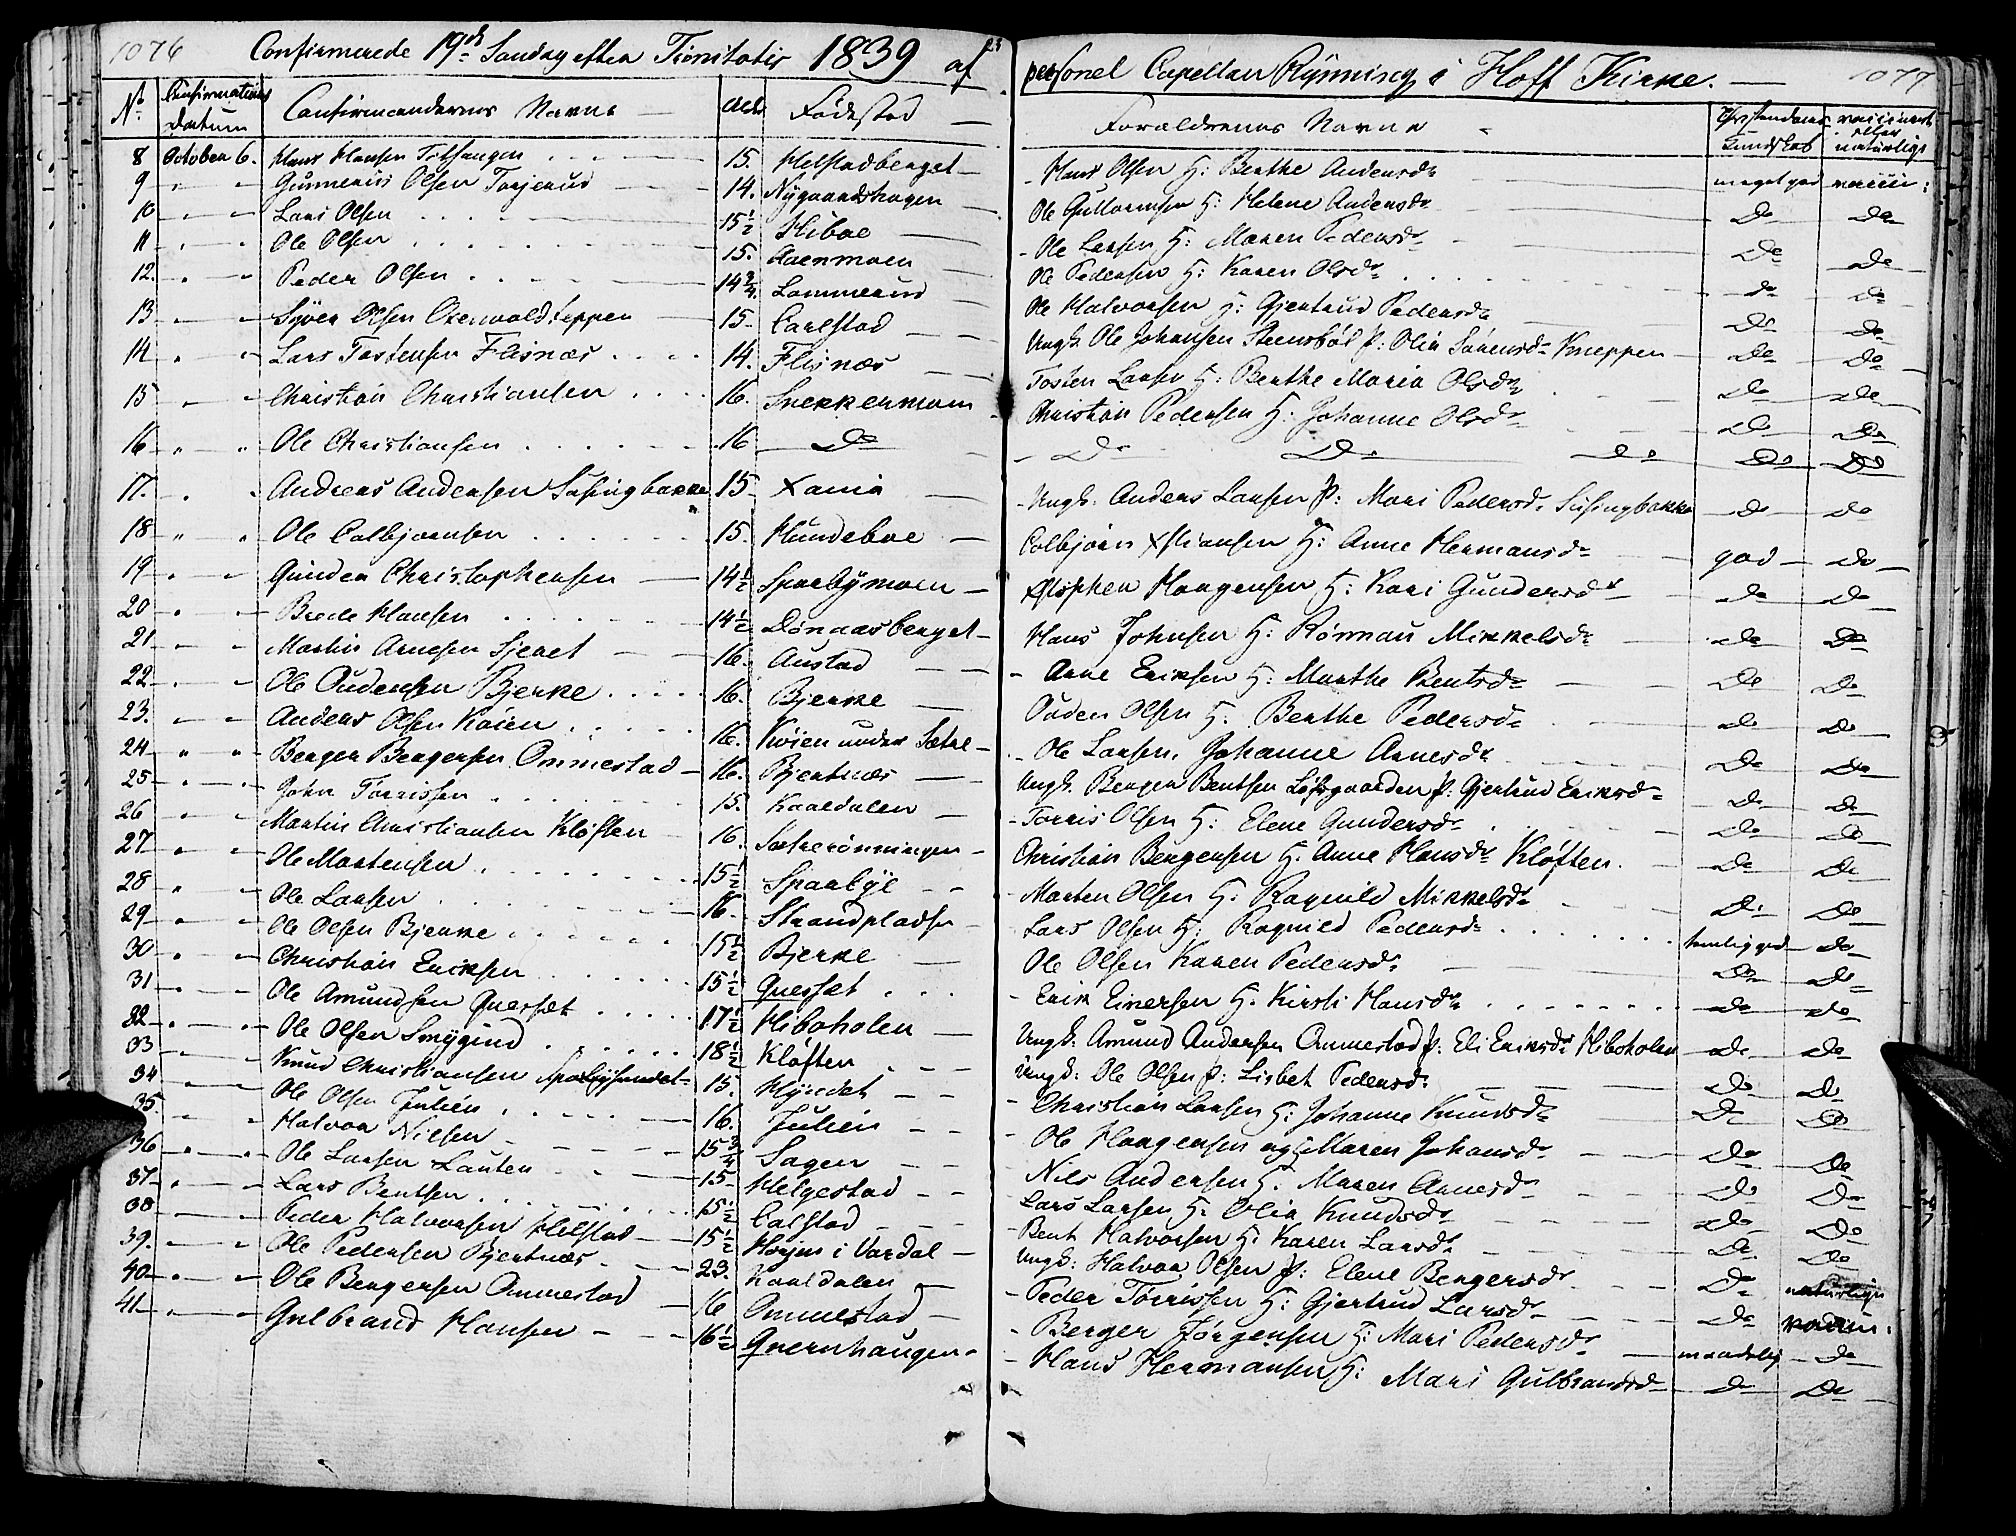 1076
Confirmerede 19de Søndag efter Trinitatis 1839 af
personel Capellan Rynning i Hoff Kirke.
1077
No Confirmations Datum Confirmandernes Navne Alder Fødested
Forældrenes Navne Christendoms Kundskab vaccineret eller naturlige
8 October 6. Hans Hansen 15. Helstadberget Hans Olsen H: Berthe Andersdr meget god vaccin:
9 " " Gunnerius Olsen Torjerud 14. Nygaardshagen Ole Guttormsen H: Helene Andersdr Do Do
10 " " Lars Olsen 15½ Hiboe Ole Larsen H: Maren Pedersdr Do Do
11 " " Ole Olsen 15. Ole Pedersen H: Karen Olsdr Do Do
12. " " Peder Olsen 14¾ Lommerud Ole Halvorsen H: Gjertrud Pedersdr Do Do
13 " " Syver Olsen 15. Carlstad Ungk. Ole Johansen Steensbøl P: Olia Sørensdr Kneppen Do Do
14 " " Lars Tostensen Flisnæs 14. Flisnæs Tosten Larsen H: Berthe Maria Olsdr Do Do
15 " " Christian Christiansen 16. Snekkermoen Christian Pedersen H: Johanne Olsdr Do Do
16 " " Ole Christiansen 16 Do Do Do Do Do Do
17. " " Andreas Andersen 15 Xania Ungk: Anders Larsen P: Mari Pedersdr Do Do
18 " " Ole Colbjørnsen 15. Hundeboe Colbjørn Xstiansen H: Anne Hermansdr god Do
19 " " Gunder Christophersen 14½ Sparbymoen Xstopher Haagensen H: Kari Gundersdr Do Do
20 " " Brede Hansen 14½ Hans Johnsen H: Rønnau Mikkelsdr Do Do
21 " " Martin Arnesen 16. Austad Arne Eriksen H: Marthe Bentsdr Do Do
22 " " Ole Oudensen Bjerke 16. Bjerke Ouden Olsen H: Berthe Pedersdr Do Do
23. " " Anders Olsen Køien 16. Køien under Sætre Ole Larsen, Johanne Arnesdr Do Do
24 " " Berger Bergersen Ommestad 16. Bjertnæs Ungk. Berger Bentsen P: Gjertrud Eriksdr Do Do
25 " " John Torrissen 15. Kaaldalen Torris Olsen H: Elene Gundersdr Do Do
26 " " Martin Christiansen Kløften 16. Sætrerønningen Christian Bergersen H: Anne Hansdr Kløften. Do Do
27 " " Ole Mortensen 15½ Sparbye Morten Olsen H: Ragnild Mikkelsdr Do Do
28 " " Ole Larsen 16. Strandpladsen Lars Olsen H: Ragnild Pedersdr temlig god Do
29 " " Ole Olsen Bjerke 15½ Bjerke Ole Olsen Karen Pedersdr Do Do
30 " " Christian Eriksen 15½ Quesset Erik Einersen H: Kirsti Hansdr Do Do
31 " " Ole Amundsen Quesset 17½ Hiboholen Ungk. Amund Andersen Ommestad P: Eli Eriksdr Hiboholen Do Do
32 " " Ole Olsen 18½ Kløften Ungk: Ole Olsen P: Lisbet Pedersdr Do Do
33 " " Knud Christiansen 15. Christian Larsen H: Johanne Knudsdr Do Do
34 " " Ole Olsen Julien 16. Julien Ole Haagensen og Maren Johansdr Do Do
35. " " Halvor Nielsen 15¾ Sagen Nils Andersen H: Maren Arnesdr Do Do
36 " " Ole Larsen Lauten 15 Helgestad Lars Larsen H: Olia Knudsdr Do Do
37. " " Lars Bentsen 15½ Calstad Bent Halvorsen H: Karen Larsdr Do Do
38 " " Peder Halvorsen Helstad 15½ i Vardal Ungk: Halvor Olsen P: Elene Bergersdr Do naturlige
39. " " Ole Pedersen Bjertnæs 23. Kaaldalen Peder Torrissen H: Gjertrud Larsdr Do vaccin:
40 " " Ole Bergersen Ommestad 16 Ommestad Berger Jørgensen H: Mari Pedersdr maadelig Do
41 " " Gulbrand Hansen 16½ Quernhaugen Hans Hermansen H: Mari Gulbrandsdr Do Do